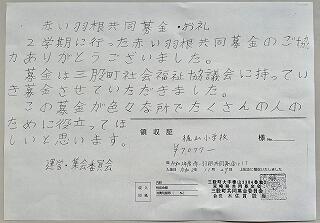 赤い羽根共同募金・お礼
2学期に行った赤い羽根共同募金のご協
力ありがとうございました。
募金は三股町社会福祉協議会に持っていき
募金させていただきました。
この募金が色々な所でたくさんの人の
ために役立ってほ
しいと思います。
運営・集会委員会
領収証
小学校 様
¥7077
三股町共同募金委員会